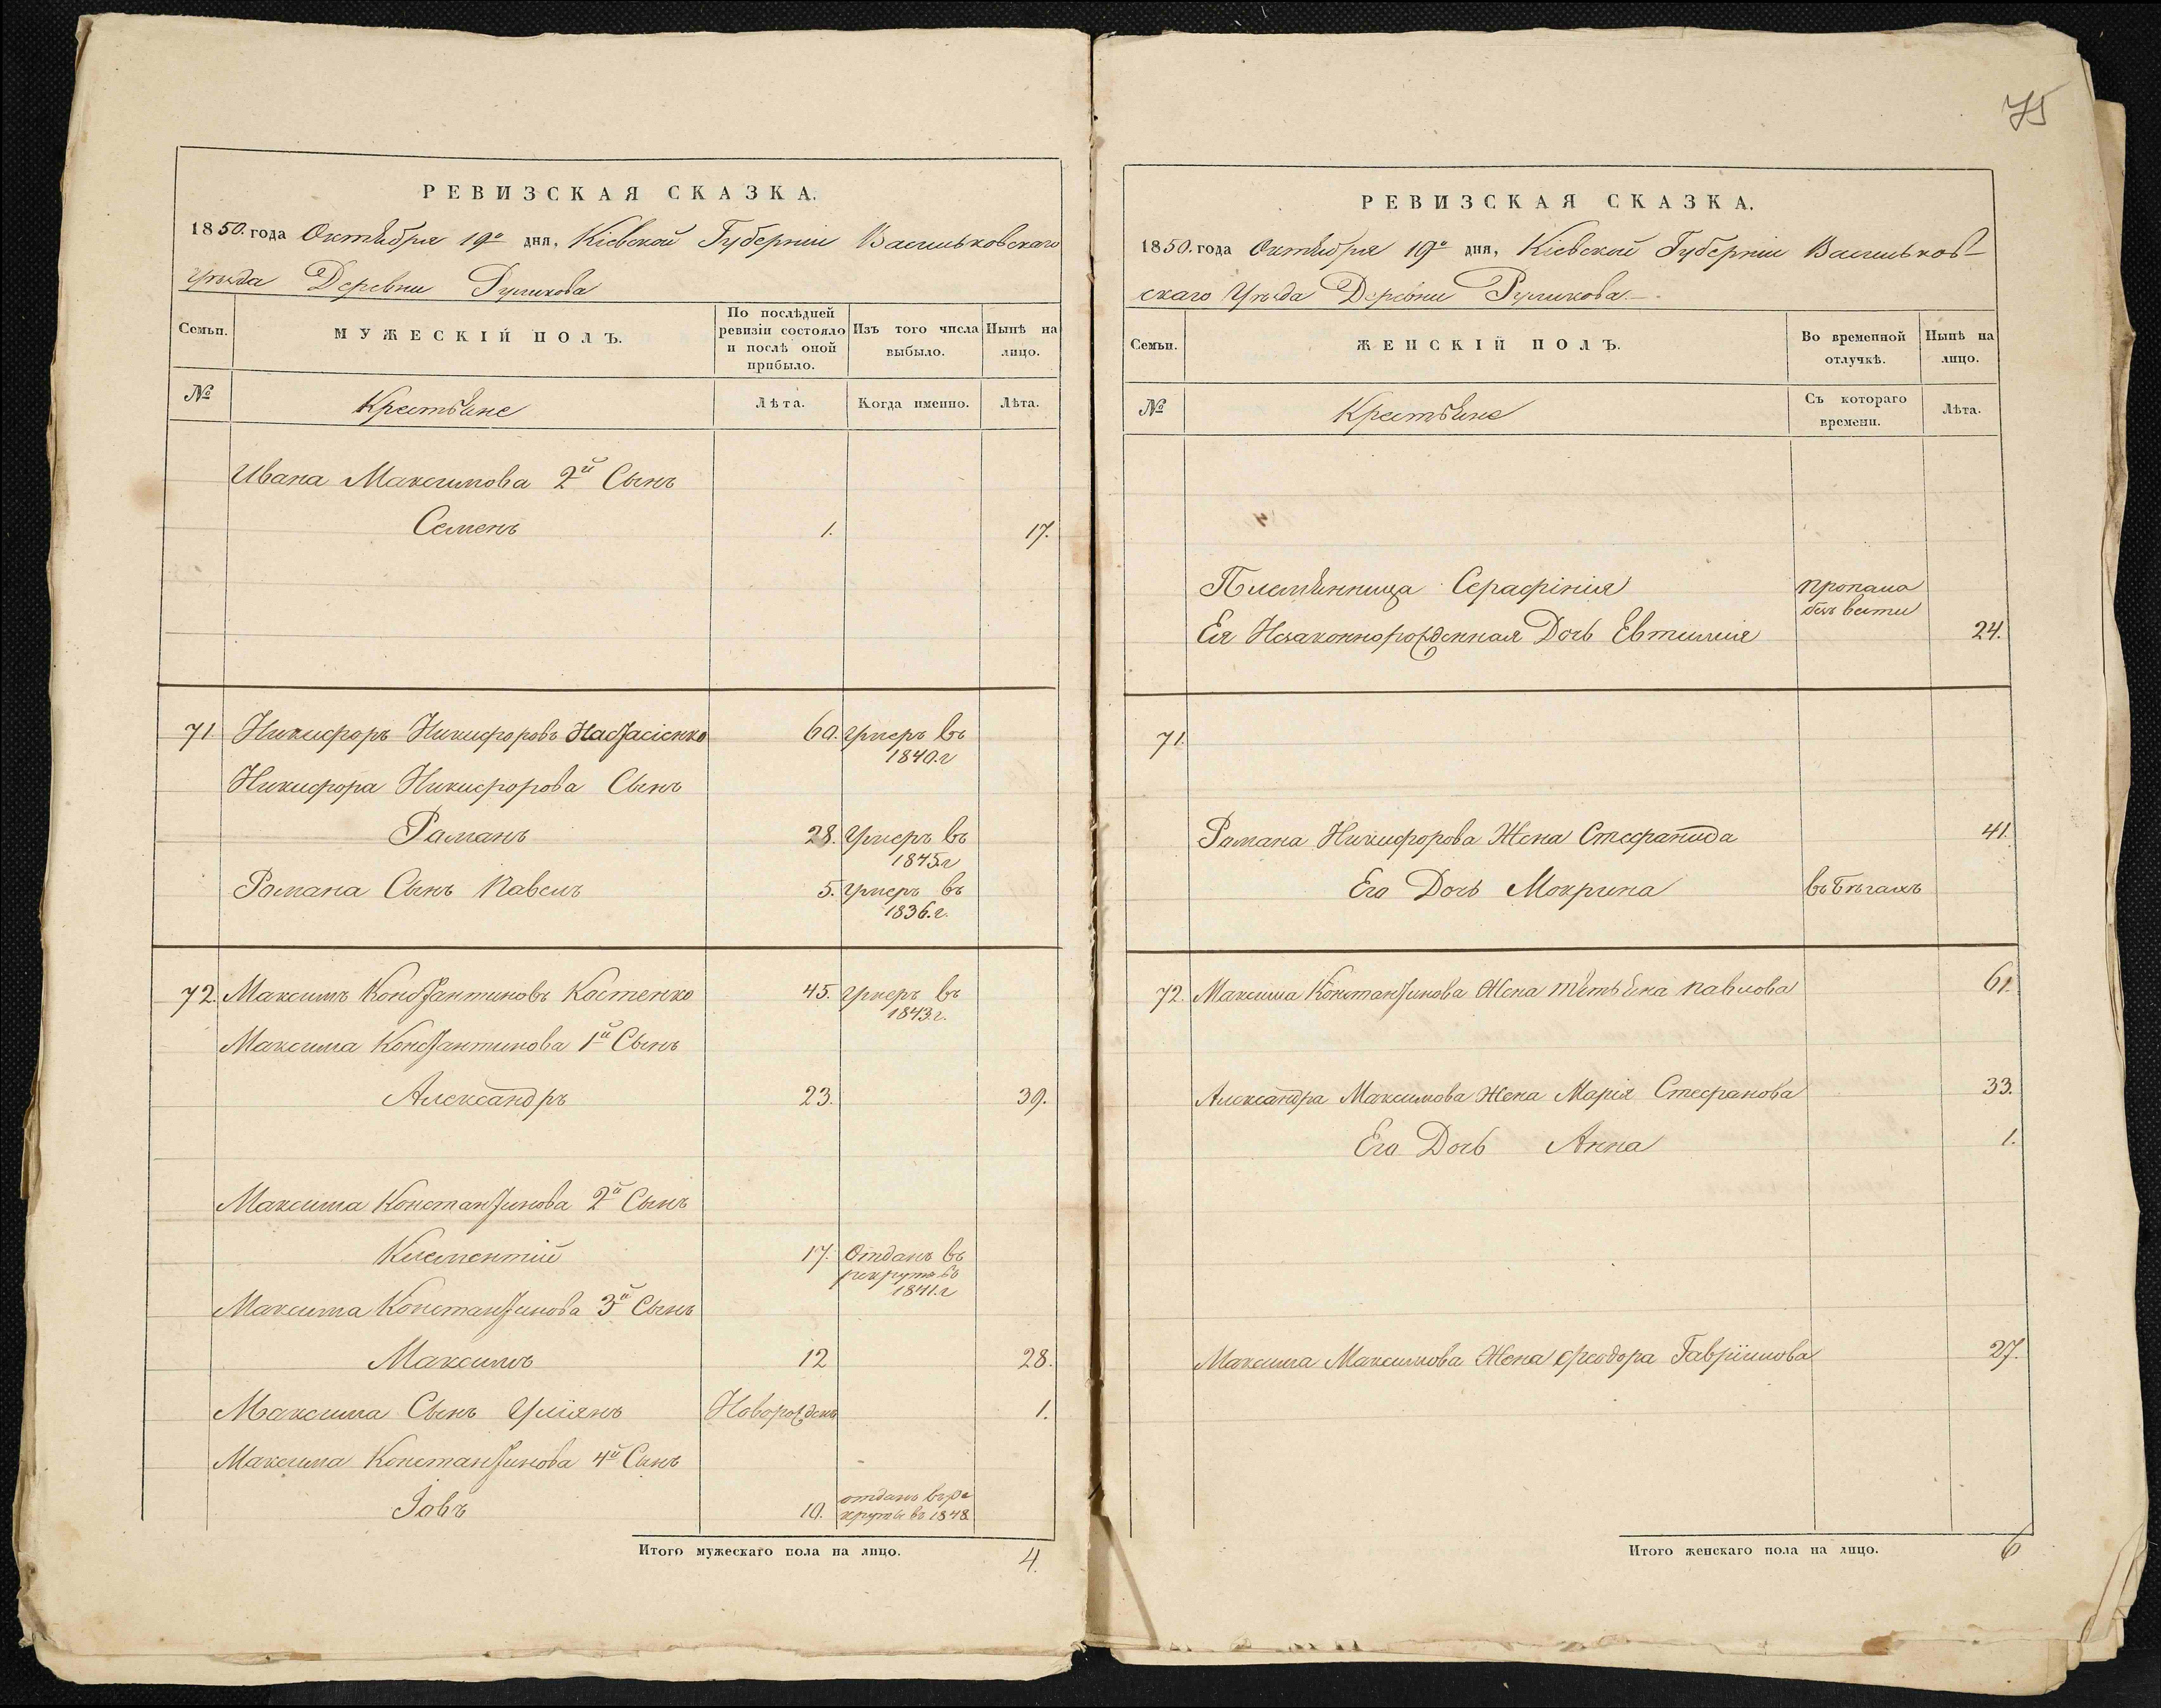 РЕВИЗСКАЯ СКАЗКА.
1850. года Октября 19го дня, Кіевской Губерніи Васильковскаго
Уѣзда Деревни Руликова
Семьи.
МУЖЕСКІЙ ПОЛЪ.
По послѣдней ревизіи состояло и послѣ оной прибыло.
Изъ того числа выбыло.
Нынѣ на лицо.
№
Крестьяне
Лѣта.
Когда именно.
Лѣта.
Ивана Максимова 2й Сынъ
Семенъ 1. 17.
71. Никифоръ Никифоровъ 60. Умеръ въ
1840.г
Никифора Никифорова Сынъ
Романъ 28. Умеръ въ
1845.г
Романа Сынъ Павелъ 5. Умеръ въ
1836.г.
72. Максимъ Константиновъ Костенко 45. Умеръ въ
1843.г.
Максима Константинова 1й Сынъ
Александръ 23. 39.
Максима Константинова 2й Сынъ
Клементій 17. Отданъ въ
рекруты въ
1841.г
Максима Константинова 3й Сынъ
Максимъ 12 28.
Максима Сынъ Уліянъ Новорожденъ 1.
Максима Константинова 4й Сынъ
Іовъ 10. отданъ въ ре
круты въ 1848
Итого мужескаго пола на лицо. 4.
75
РЕВИЗСКАЯ СКАЗКА.
1850. года Октября 19го дня, Кіевской Губерніи Васильков-
скаго Уѣзда Деревни Руликова.
Семьи.
ЖЕНСКІЙ ПОЛЪ.
Во временной отлучкѣ.
Нынѣ на лицо.
№
Крестьяне
Съ котораго времени.
Лѣта.
Племянница Серафінія пропала
безъ вести
Ея Незаконнорожденная Дочь Евтимія 24.
71.
Романа Никифорова Жена Стефанида 41.
Его Дочь Мокрина въ Бѣгахъ
72. Максима Константинова Жена Тятьяна Павлова 61.
Александра Максимова Жена Марія Стефанова 33.
Его Дочь Анна 1.
Максима Максимова Жена Феодора Гавріилова 27.
Итого женскаго пола на лицо. 6